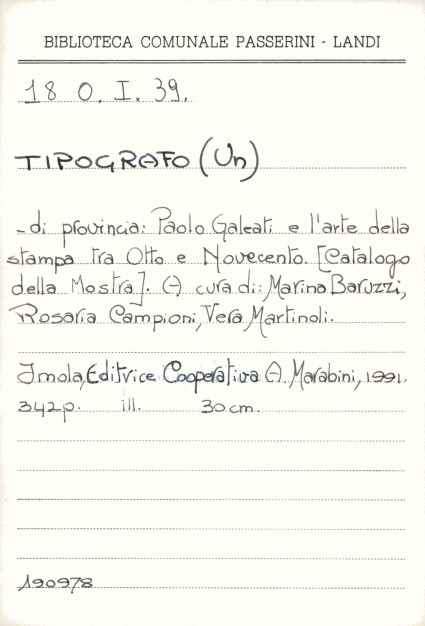 BIBLIOTECA COMUNALE PASSERINI - LANDI
18 O. I. 39.
TIPOGRAFO (Un)
- di provincia: Paolo Galeati e l'arte della
stampa tra Otto e Novecento. [Catalogo
della Mostra]. A cura di: Marina Baruzzi,
Rosaria Campioni, Vera Martinoli.
Imola, Editrice Cooperativa A. Marabini, 1991.
342p. ill. 30 cm.
190978